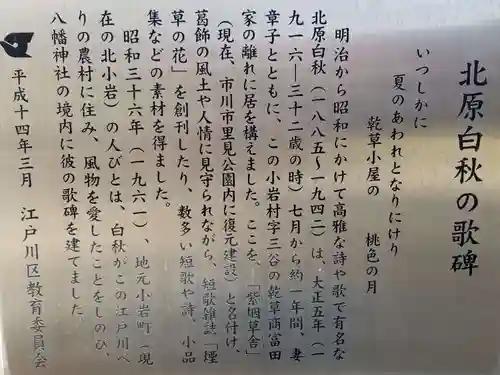 北原白秋の歌碑
いつしかに
夏のあわれとなりにけり
乾草小屋の　桃色の月
明治から昭和にかけて高雅な詩や歌で有名な
北原白秋（一八八五～一九四二）は、大正五年（一
九一六―三十二歳の時）七月から約一年間、妻
章子とともに、この小岩村字三谷の乾草商富田
家の離れに居を構えました。ここを、「紫烟草舎」
（現在、市川市里見公園内に復元建設）と名付け、
葛飾の風土や人情に見守られながら、短歌雑誌「煙
草の花」を創刊したり、数多い短歌や詩、小品
集などの素材を得ました。
昭和三十六年（一九六一）、地元小岩町（現
在の北小岩）の人びとは、白秋がこの江戸川べ
りの農村に住み、風物を愛したことをしのび、
八幡神社の境内に彼の歌碑を建てました
平成十四年三月　江戸川区教育委員会